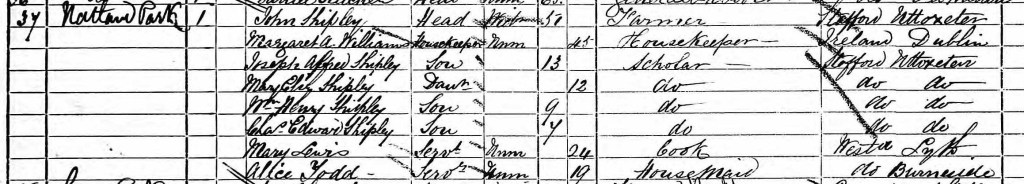 37 Natland Park 1 John Shipley Head 51 Farmer Stafford Uttoxeter
Margaret A. Williams Housekeeper Unm 45 Housekeeper Ireland Dublin
Joseph Alfred Shipley Son 13 Scholar Stafford Uttoxeter
Mary Shipley Daur 12 do do do
Wm Henry Shipley Son 9 do do do
Chas. Edward Shipley Son 7 do do do
Mary Lewis Servt Unm 24 Cook Westd Lyth
Alice Todd Servt Unm 19 House Maid do Burneside